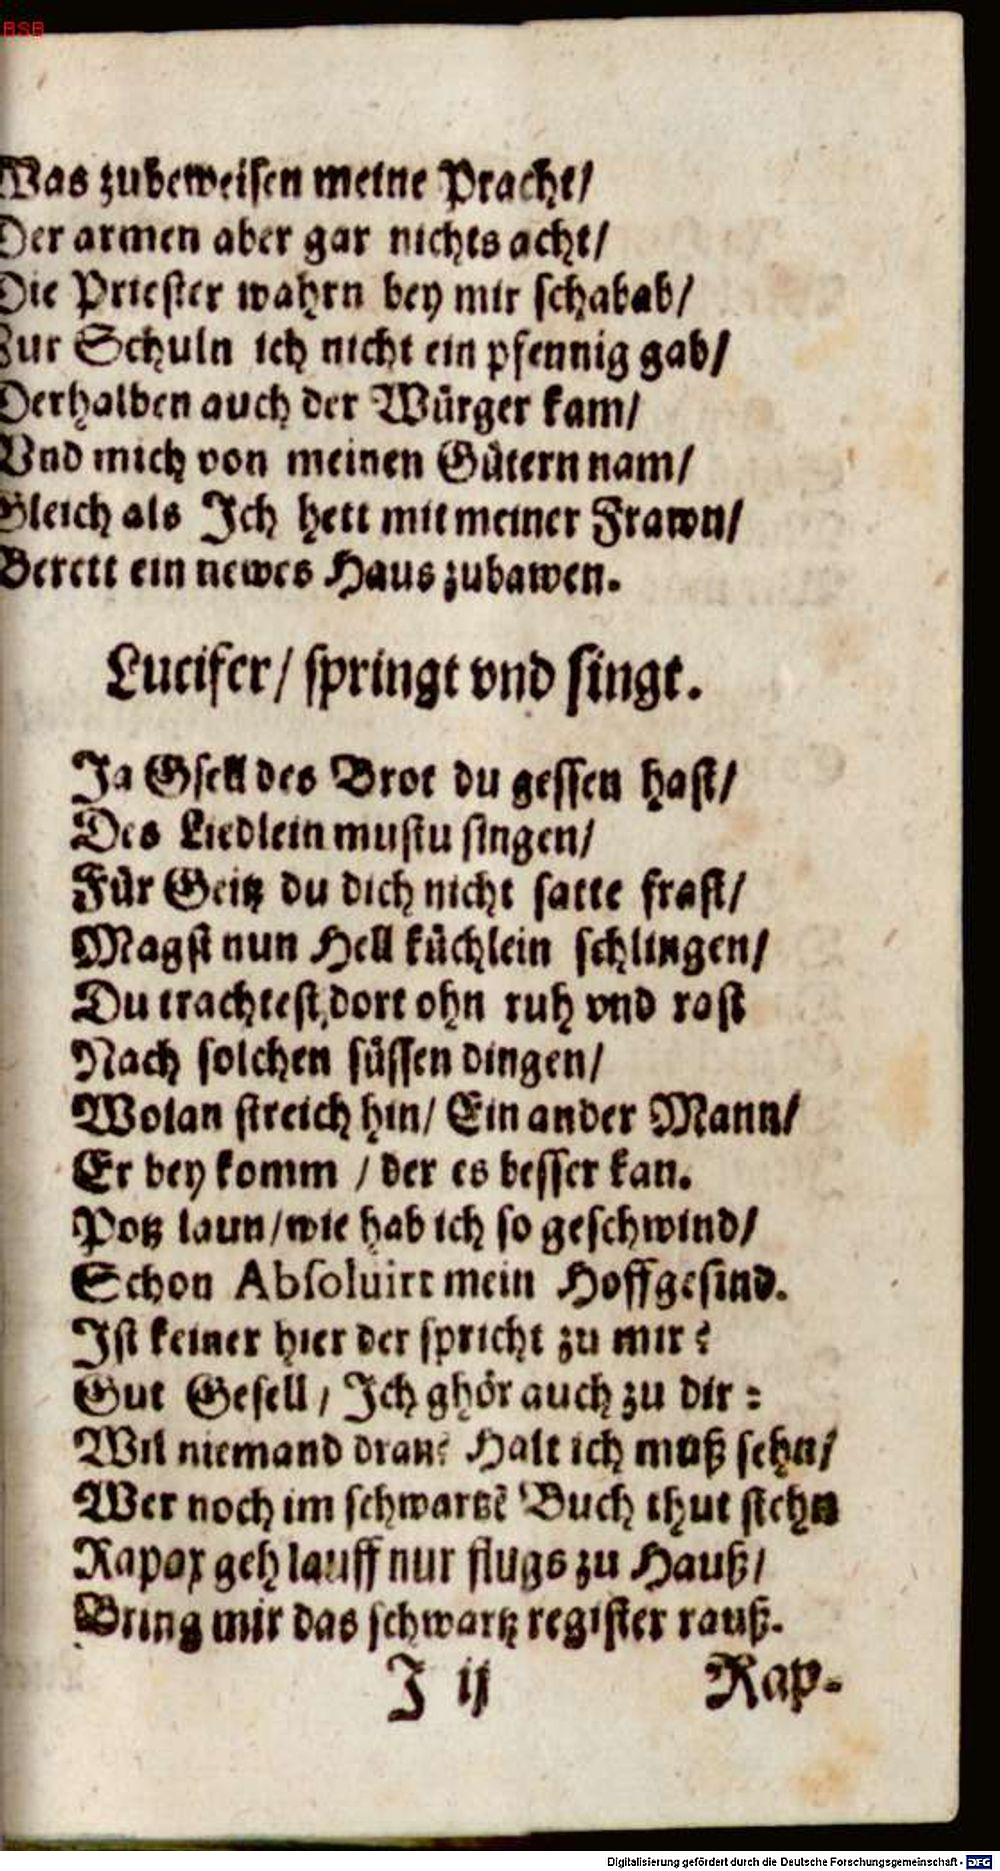 BSB
Was zubeweisen meine Pracht/
Der armen aber gar nichts acht/
Die Priester wahrn bey mir schabab/
Zur Schuln ich nicht ein pfennig gab/
Derhalben auch der Würger kam/
Vnd mich von meinen Gütern nam/
Gleich als Ich hett mit meiner Frawn/
Berett ein newes Haus zubawen.
Lucifer/ springt vnd singt.
Ja Gsell des Brot du gessen hast/
Des Liedlein mustu singen/
Für Geitz du dich nicht satte frast/
Magst nun Hell küchlein schlingen/
Du trachtest dort ohn ruh vnd rast
Nach solchen süssen dingen/
Wolan streich hin/ Ein ander Mann/
Er bey komm / der es besser kan.
Potz laun/wie hab ich so geschwind/
Schon Absoluirt mein Hoffgesind.
Ist keiner hier der spricht zu mir?
Gut Gesell/ Ich ghör auch zu dir:
Wil niemand dran? Halt ich muß sehn/
Wer noch im schwartzē Buch thut stehn
Rapax geh lauff nur flugs zu Hauß/
Bring mir das schwartz register rauß.
J ij Rap-
Digitalisierung gefördert durch die Deutsche Forschungsgemeinschaft - DFG